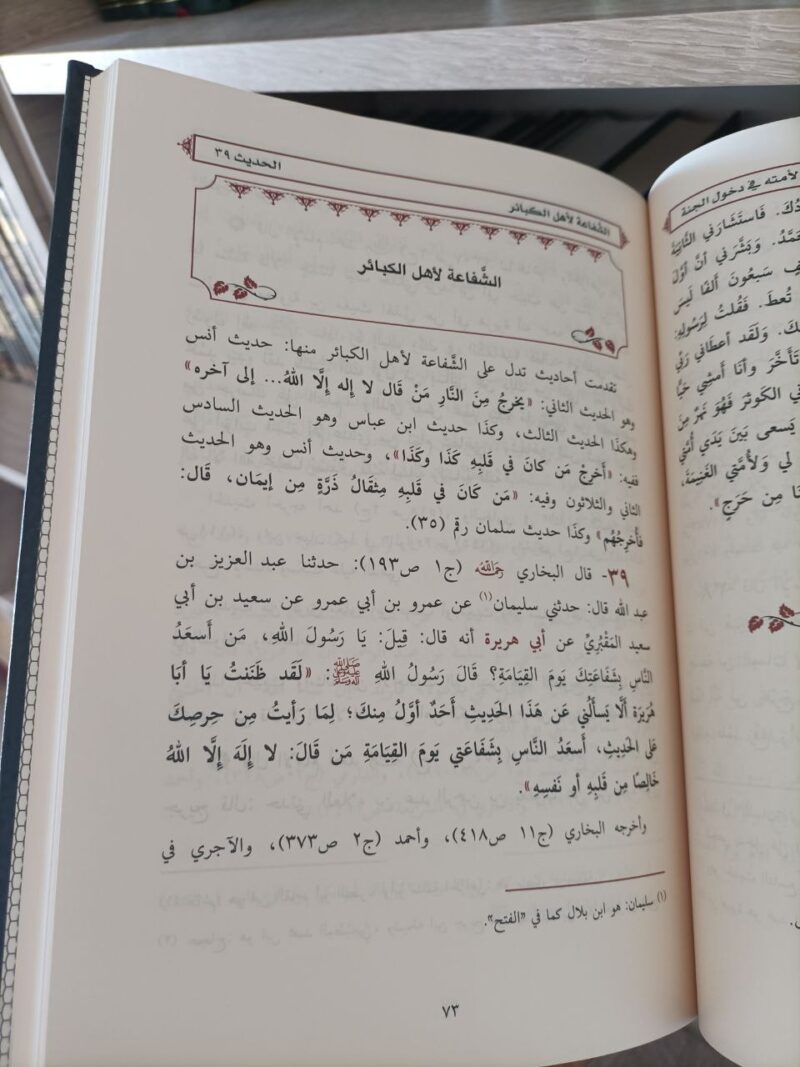 الشفاعة لأهل الكبائر
الحديث ٣٩
الشَّفاعة لأهل الكبائر
تقدمت أحاديث تدل على الشَّفاعة لأهل الكبائر منها: حديث أنس
وهو الحديث الثاني: «يخرجُ مِنَ النَّارِ مَنْ قَال لا إِله إِلَّا اللهُ... إلى آخره»
وهكذا الحديث الثالث، وكذا حديث ابن عباس وهو الحديث السادس
ففيه: «أَخرِجْ مَن كانَ في قَلبِهِ كَذَا وكَذَا»، وحديث أنس وهو الحديث
الثاني والثلاثون وفيه: «مَن كَانَ في قَلبِهِ مِثقَالُ ذَرَّةٍ مِن إيمَان، قَال:
فأُخرِجُهُم» وكذا حديث سلمان رقم (٣٥).
٣٩- قال البخاري رحمه الله (ج١ ص١٩٣): حدثنا عبد العزيز بن
عبد الله قال: حدثني سليمان(١) عن عمرو بن أبي عمرو عن سعيد بن أبي
سعيد المَقْبُرِيِّ عن أبي هريرة أنه قال: قِيلَ: يَا رَسُولَ اللهِ، مَن أَسعَدُ
النَّاسِ بِشَفَاعَتِكَ يَومَ القِيَامَةِ؟ قَالَ رَسُولُ اللهِ ﷺ: «لَقَد ظَنَنتُ يَا أَبَا
هُرَيرَةَ أَلَّا يَسأَلُني عَن هَذَا الحَدِيثِ أَحَدٌ أوَّلُ مِنكَ؛ لِمَا رَأيتُ مِن حِرصِكَ
عَلى الحَدِيثِ، أَسعَدُ النَّاسِ بِشَفَاعَتي يَومَ القِيَامَةِ مَن قَالَ: لا إِلَهَ إِلَّا اللهُ
خَالِصًا مِن قَلبِهِ أو نَفسِهِ».
وأخرجه البخاري (ج١١ ص٤١٨)، وأحمد (ج٢ ص٣٧٣)، والآجري في
(١) سليمان: هو ابن بلال كما في «الفتح».
٧٣
لأمته في دخول الجنة
فَاستَشَارَني الثَّانِيَةَ
وَبَشَّرَني أنَّ أوَّلَ
سَبعُونَ ألفًا لَيسَ
تُعطَ. فَقُلتُ لِرَسُولِهِ:
وَلَقَد أعطَاني رَبِّي
تَأَخَّرَ وأنَا أَمشِي حَيًّا
الكَوثَرَ فَهُوَ نَهَرٌ مِنَ
يَسعَى بَينَ يَدَي أُمَّتي
لي وَلأُمَّتي الغَنِيمَةَ،
مِن حَرَجٍ».